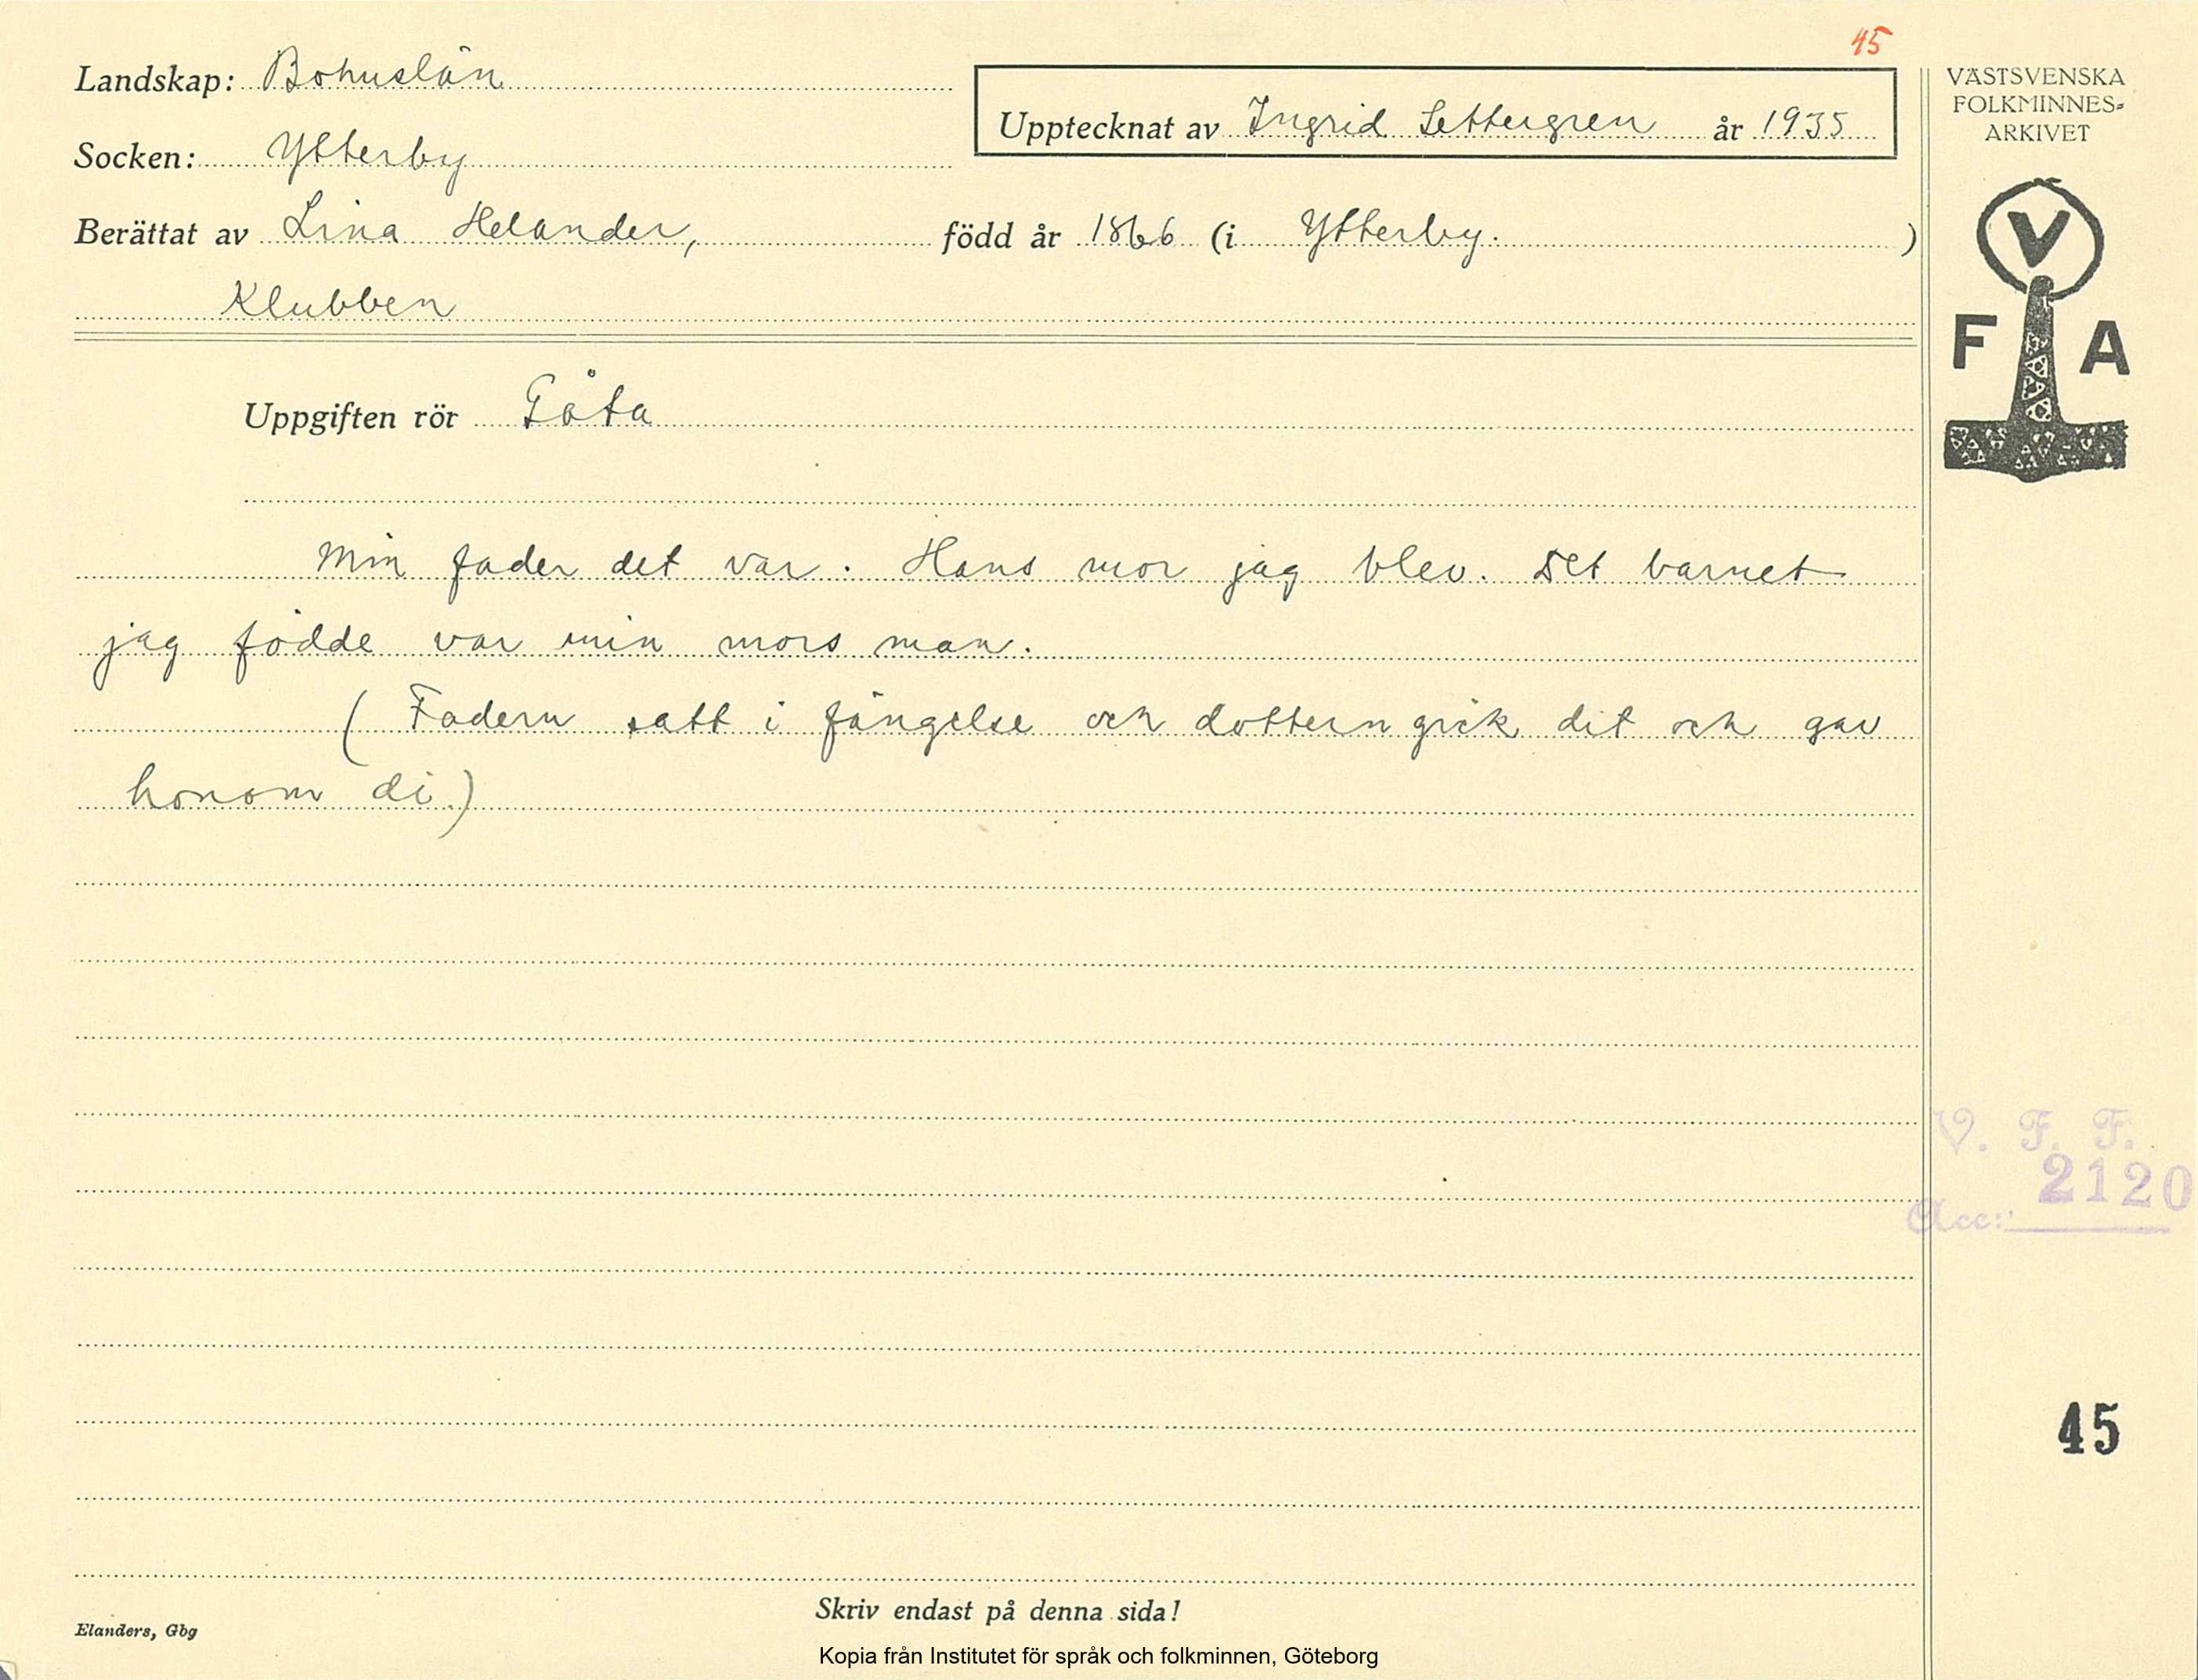 45
Landskap: Bohuslän
Upptecknat av Ingrid Settergren år 1935
Socken: Ytterby
Berättat av Lina Helander, född år 1866 (i Ytterby. )
Klubben
VÄSTSVENSKA
FOLKMINNES-
ARKIVET
V
F A
Uppgiften rör Gåta
Min fader det var. Hans mor jag blev. Det barnet
jag födde var min mors man.
( Fadern satt i fängelse och dottern gick dit och gav
honom di.)
V. F. F.
2120
Acc:
45
Skriv endast på denna sida!
Elanders, Gbg
Kopia från Institutet för språk och folkminnen, Göteborg